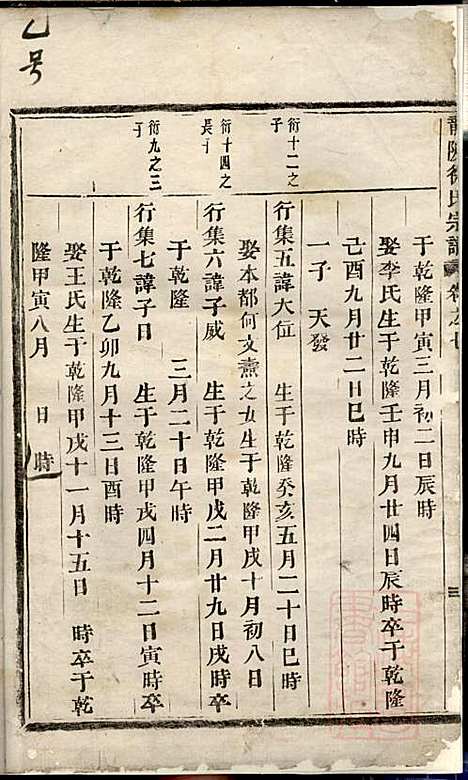 乙号
徐氏宗譜 卷之七
三
于乾隆甲寅三月初二日辰時
娶李氏生于乾隆壬申九月廿四日辰時卒于乾隆
己酉九月廿二日巳時
一子 天發
衍十二之
子
行集五諱大位 生于乾隆癸亥五月二十日巳時
娶本都何文燾之女生于乾隆甲戌十月初八日
衍十四之
長子
行集六諱子威 生于乾隆甲戌二月廿九日戌時卒
于乾隆 三月二十日午時
衍九之三
子
行集七諱子日 生于乾隆甲戌四月十二日寅時卒
于乾隆乙卯九月十三日酉時
娶王氏生于乾隆甲戌十一月十五日 時卒于乾
隆甲寅八月 日 時